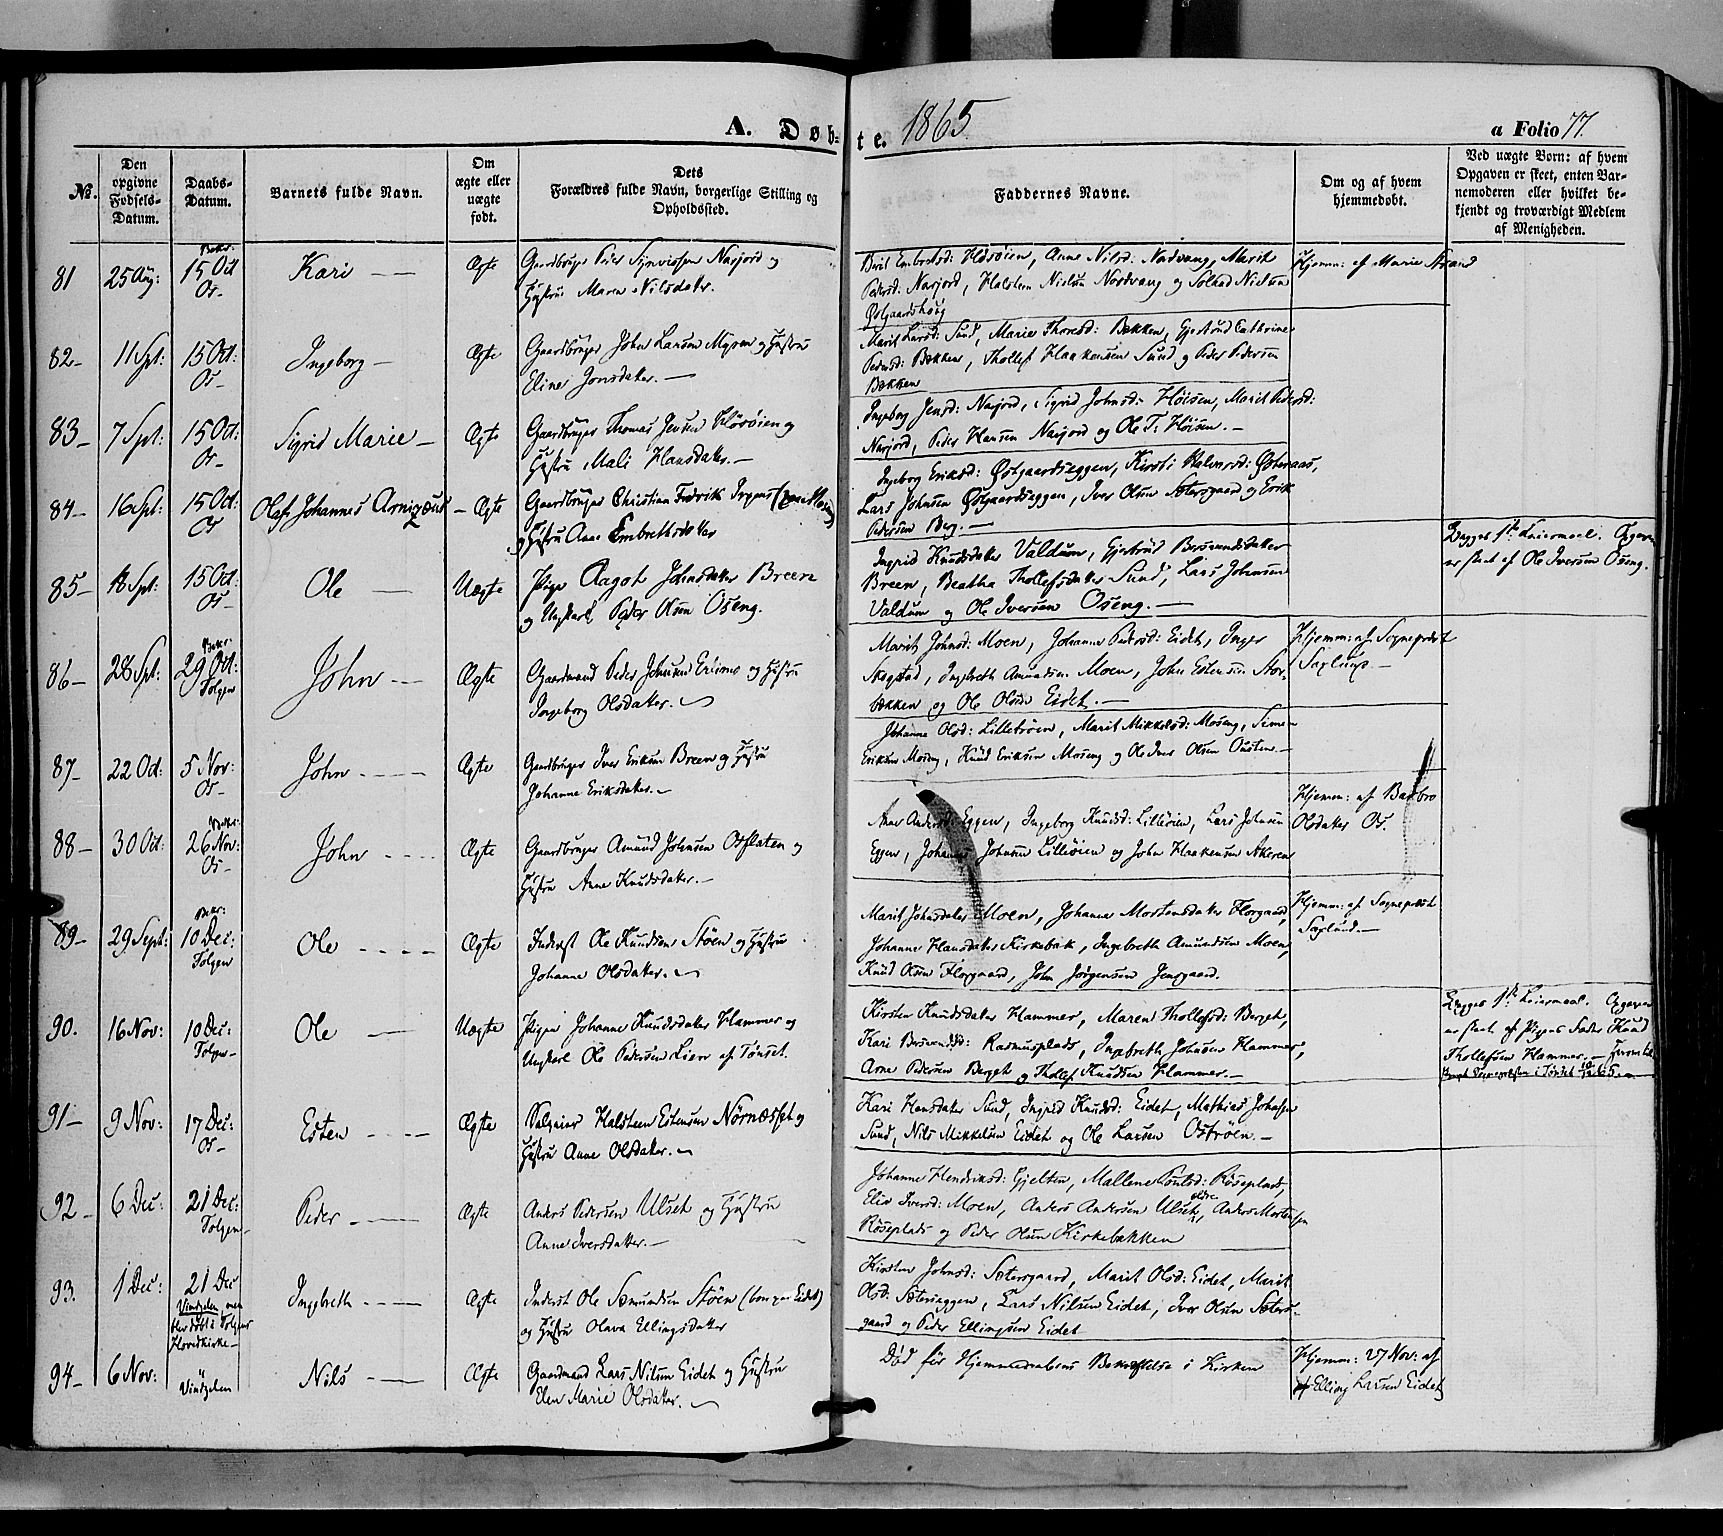 A. Døbte. 1865
a Folio 77.
No.
Den opgivne Fødsels-Datum.
Daabs-Datum.
Barnets fulde Navn.
Om ægte eller uægte født.
Dets Forældres fulde Navn, borgerlige Stilling og Opholdssted.
Faddernes Navne.
Om og af hvem hjemmedøbt.
Ved uægte Børn: af hvem Opgaven er skeet, enten Barnemoderen eller hvilket bekjendt og troværdigt Medlem af Menigheden.
81 25 Aug: Bekr: 15 Oct Os Kari Ægte
Gaardbruger Peder Narjord og
Hustru Maren Nilsdater.
Berit Embretsd: Anne Nilsd: Nordvang, Marit
Pedersd: Narjord, Halsteen Nielsen Nordvang og Solhad Nielsen
Østgaardshoug
Hjemm: af Marie Strand
82 11 Spt: 15 Oct: Os Ingeborg Ægte
Gaardbruger John Larsen Myren og Hustru
Eline Jonsdater.
Marit Larsd: Sund, Marie Thoresd: Bækken, Gjertrud Cathrine
Pedersd: Bækken, Thollef Haakensen Sund og Peder Pedersen
Bækken
83 7 Spt: 15 Oct: Os Sigrid Marie Ægte
Gaardbruger Thomas Jensen og
Hustru Mali Hansdater.
Ingeborg Jensd: Narjord, Sigrid Johnsd: Høisen, Marit Pedersd:
Narjord, Peder Hansen Narjord og Ole T: Høisen.
84 16 Spt: 15 Oct: Os Olaf Johannes Ægte
Gaardbruger Christian Fredrik Irgens
og Hustru Anne Embrethsdater
Ingeborg Eriksd: Østgaardseggen, Kirsti Halvorsd: Østeraas,
Lars Johnsen Østgaardseggen, Iver Olsen Sætersgaard og Erik
Pedersen Berg.
85 18 Spt: 15 Oct: Os Ole Uægte
Pige Aagot Johnsdater Breen
og Ungkarl Peder Olsen Oseng.
Ingrid Knudsdater Valdum, Gjertrud Bersvendsdater
Breen, Beatha Thollefsdater Sund, Lars Johnsen
Valdum og Ole Iversen Oseng.
Begges 1ste Leiermaal. Opgaven
er skeet af Ole Iversen Oseng.
86 28 Spt: Bekr: 29 Oct: Tolgen John Ægte
Gaardmand Peder Johnsen Erlimo og Hustru
Ingeborg Olsdater.
Marit Johnsd: Moen, Johanne Pedersd: Eidet, Inger
Skogstad, Ingebreth Amundsen Moen, John Estensen Stor-
bækken og Ole Olsen Eidet.
Hjemm: af Sognepræst
Saxlund.
87 22 Oct: 5 Nov: Os John Ægte
Gaardbruger Iver Eriksen Breen og Hustru
Johanne Eriksdater.
Johanne Olsd: Lilletrøen, Marit Mikkelsd: Moseng, Simen
Eriksen Moseng, Knud Eriksen Moseng og Ole Iver Olsen Ousten.
88 30 Oct: Bekr: 26 Nov: Os John Ægte
Gaardbruger Amund Johnsen Osflaten og
Hustru Anne Knudsdater.
Anne Andersd: Eggen, Ingeborg Knudsd: Lilleøien, Lars Johnsen
Eggen, Johannes Johnsen Lilleøien og John Haakensen Akeren
Hjemm: af Barbro
Olsdater Os.
89 29 Sept: Bekr: 10 Dec: Tolgen Ole Ægte
Inderst Ole Knudsen Støen og Hustru
Johanne Olsdater.
Marit Johnsdater Moen, Johanne Mortensdater Florgaard,
Johanne Hansdater Kirkebæk, Ingebreth Amundsen Moen,
Knud Olsen Florgaard, John Jørgensen Jensgaard.
Hjemm: af Sognepræst
Saxlund.
90. 16 Nov: 10 Dec: Tolgen Ole Uægte
Pigen Johanne Knudsdater Hammer og
Ungkarl Ole Pedersen Lien af Tønset.
Kirsten Knudsdater Hammer, Maren Thollefsd: Berget,
Kari Bersvendsd: Rasmusplads, Ingebreth Johnsen Hammer,
Arne Pedersen Berget og Thollef Knudsen Hammer.
Begges 1ste Leiermaal. Opgaven
er skeet af Pigens Fader Knud
Thollefsen Hammer.
91 9 Nov: 17 Dec: Os Esten Ægte
Halsteen Estensen Nørnæsset og
Hustru Anne Olsdater.
Kari Hansdater Sund, Ingrid Knudsd: Eidet, Mathias Johnsen
Sund, Nils Mikkelsen Eidet og Ole Larsen Ostrøen.
92 6 Dec: 21 Dec: Tolgen Peder Ægte
Anders Pedersen Ulset og Hustru
Anne Iversdatter.
Johanne Hendriksd: Gjelten, Mallene Poulsd: Røseplads,
Eliv Iversd: Moen, Anders Andersen Ulset, ældre Anders Mortensen
Røseplads og Peder Olsen Kirkebækken
93. 1 Dec: 21 Dec Vintzelen, men blev døbt i Tolgens Hovedkirke Ingebreth Ægte
Inderst Ole Sæmundsen Støen (boer paa Eidet)
og Hustru Olava Ellingsdater
Kirsten Johnsd: Sætersgaard, Marit Olsd: Eidet, Marit
Olsd: Sæterseggen, Lars Nilsen Eidet, Iver Olsen Sæters-
gaard og Peder Ellingsen Eidet
94 6 Nov: " Vintzelen Nils Ægte
Gaardmand Lars Nilsen Eidet og Hustru
Elen Marie Olsdater.
Død før Hjemmedaabens Bekræftelse i Kirken
Hjemm: 27 Nov: af
Elling Larsen Eidet